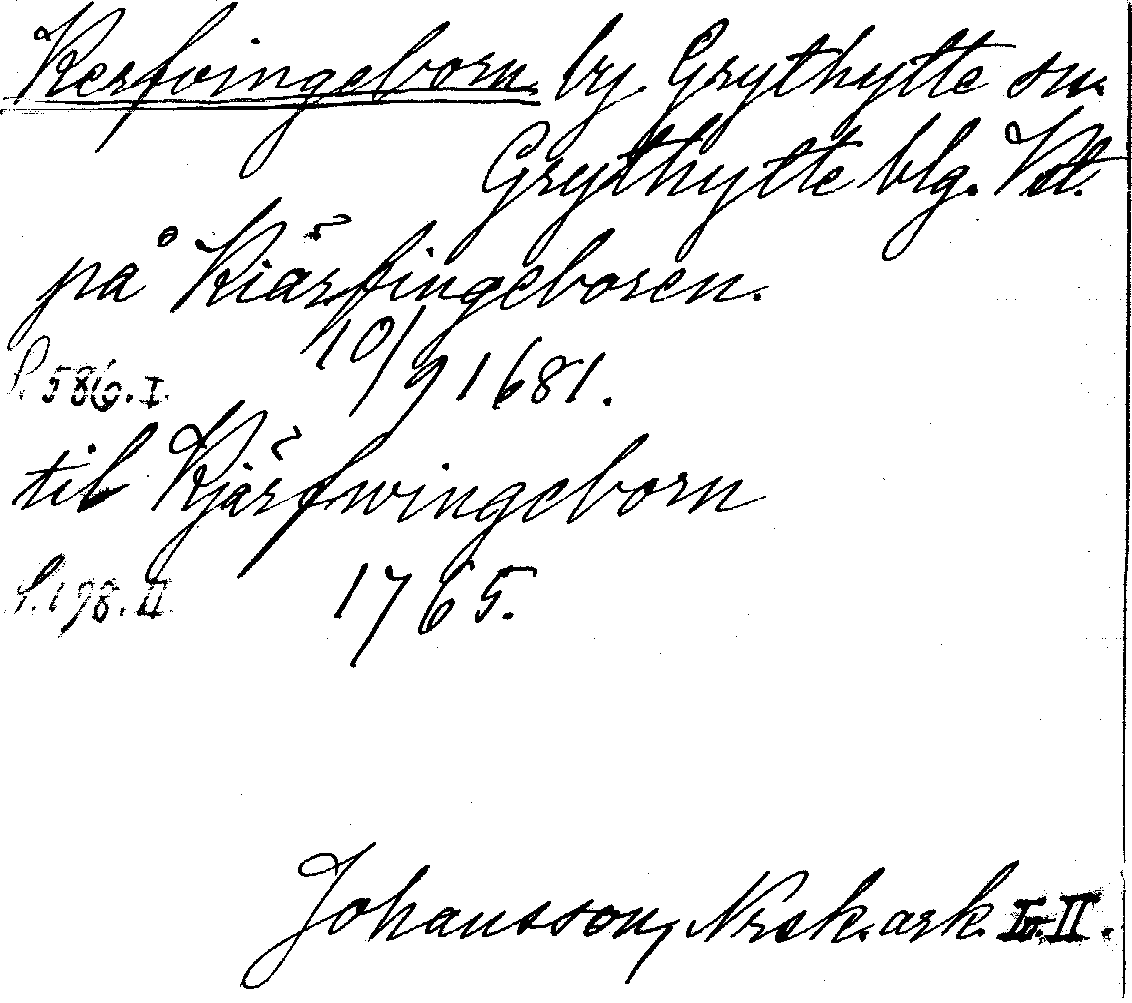 Kerfvingeborn. by. Grythytte sn.
Grythytte blg. Vstl.
på Kiärfingeboren.
S. 586. I. 10/9 1681.
til Kjärfwingeborn
S. 198. II. 1765.
Johansson, Nrsk. ark. I o. II.